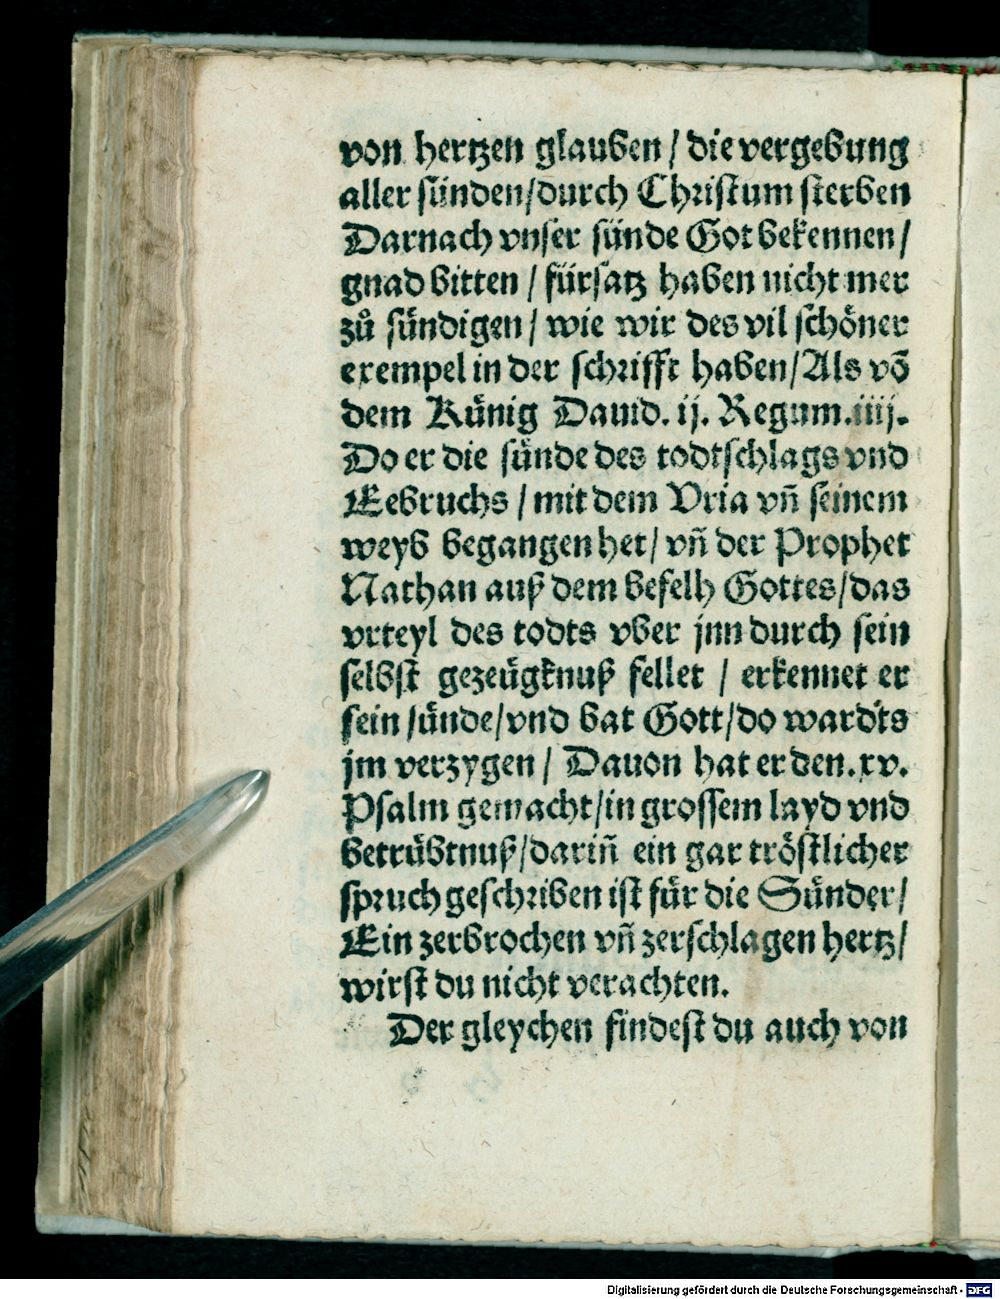 von hertzen glauben / die vergebung
aller sünden/durch Christum sterben
Darnach vnser sünde Got bekennen/
gnad bitten / fürsatz haben nicht mer
zů sündigen / wie wir des vil schöner
exempel in der schrifft haben/Als võ
dem Künig Dauid. ij. Regum.iiij.
Do er die sünde des todtschlags vnd
Eebruchs / mit dem Vria vñ seinem
weyb begangen het/ vñ der Prophet
Nathan auß dem befelh Gottes/das
vrteyl des todts vber jnn durch sein
selbst gezeügknuß fellet / erkennet er
sein sünde/vnd bat Gott/do wardts
jm verzygen / Dauon hat er den.xv.
Psalm gemacht/in grossem layd vnd
betrübtnuß/dariñ ein gar tröstlicher
spruch geschriben ist für die Sünder/
Ein zerbrochen vñ zerschlagen hertz/
wirst du nicht verachten.
Der gleychen findest du auch von
Digitalisierung gefördert durch die Deutsche Forschungsgemeinschaft - DFG